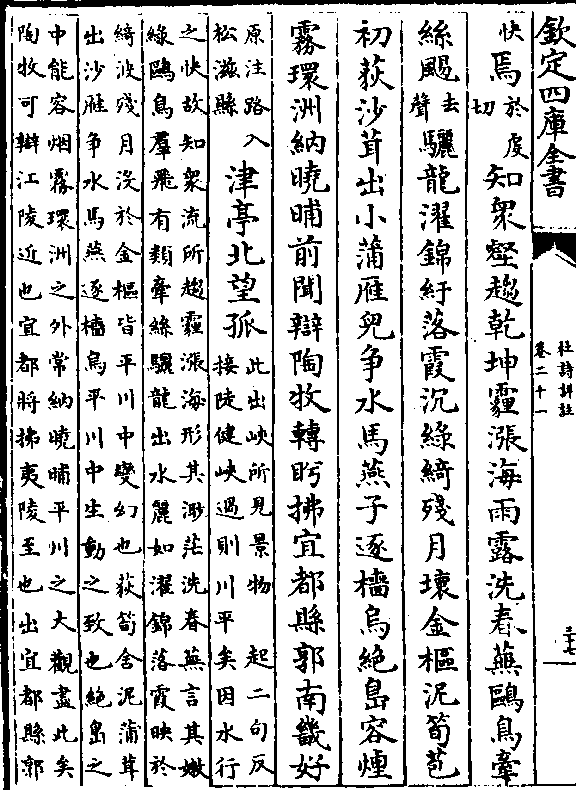 欽定四庫全書
杜詩詳註
卷二十一
三十七
快焉於虔切知衆壑趨乾坤霾漲海雨露洗春蕪鷗鳥牽
絲颺去聲驪龍濯錦紆落霞沉綠綺殘月壞金樞泥筍苞
初荻沙茸出小蒲雁兒爭水馬燕子逐檣烏絶島容煙
霧環洲納曉晡前聞辯陶牧轉眄拂宜都縣郭南畿好
原注路入
松滋縣
津亭北望孤
此出峽所見景物 起二句反
接陡健峽過則川平矣因水行
之快故知衆流所趨霾漲海形其渺茫洗春蕪言其嫩
綠鷗鳥羣飛有類牽絲驪龍出水麗如濯錦落霞映於
綺波殘月沒於金樞皆平川中變幻也荻筍含泥蒲茸
出沙雁爭水馬燕逐檣烏平川中生動之致也絶島之
中能容烟霧環洲之外常納曉晡平川之大觀盡此矣
陶牧可辯江陵近也宜都將拂夷陵至也出宜都縣郭